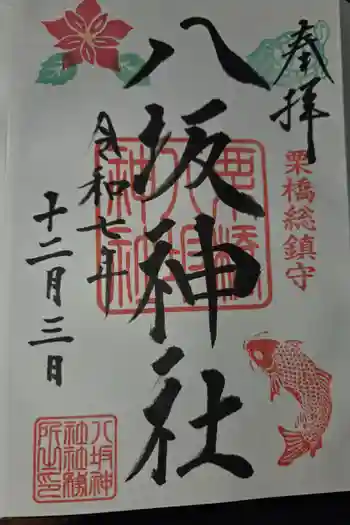 奉拝
栗橋総鎮守
八坂神社
令和七年
十二月三日
八坂神
社社務
所之印